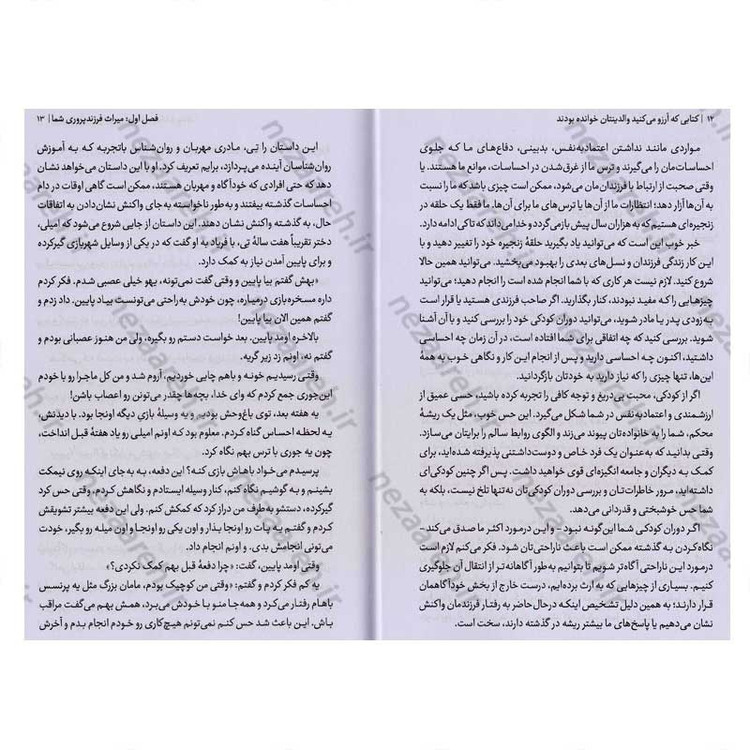 ۱۲ | کتابی که آرزو می‌کنید والدینتان خوانده بودند
مواردی مانند نداشتن اعتمادبه‌نفس، بدبینی، دفاع‌های ما که جلوی
احساسات‌مان را می‌گیرند و ترس ما از غرق‌شدن در احساسات، موانع ما هستند. یا
وقتی صحبت از ارتباط با فرزندان‌مان می‌شود، ممکن است چیزی باشد که ما را نسبت
به آن‌ها آزار دهد؛ انتظارات ما از آن‌ها یا ترس‌های ما برای آن‌ها. ما فقط یک حلقه در
زنجیره‌ای هستیم که به هزاران سال پیش بازمی‌گردد و خدا می‌داند که تا کی ادامه دارد.
خبر خوب این است که می‌توانید یاد بگیرید حلقهٔ زنجیره خود را تغییر دهید و با
این کار زندگی فرزندان و نسل‌های بعدی را بهبود می‌بخشید. می‌توانید از همین حالا
شروع کنید. لازم نیست هر کاری که با شما انجام شده است را انجام دهید؛ می‌توانید
چیزهایی را که مفید نبودند، کنار بگذارید. اگر صاحب فرزندی هستید یا قرار است
به زودی پدر یا مادر شوید، می‌توانید دوران کودکی خود را بررسی کنید و با آن آشنا
شوید. بررسی کنید که چه اتفاقی برای شما افتاده است، در آن زمان چه احساسی
داشتید، اکنون چه احساسی دارید و پس از انجام این کار و نگاهی خوب به همهٔ
این‌ها، تنها چیزی را که نیاز دارید به خودتان بازگردانید.
اگر از کودکی، محبت بی‌دریغ و توجه کافی را تجربه کرده باشید، حسی عمیق از
ارزشمندی و اعتمادبه‌نفس در شما شکل می‌گیرد. این حس خوب، مثل یک ریشهٔ
محکم، شما را به خانواده‌تان پیوند می‌زند و الگوی روابط سالم را برایتان می‌سازد.
وقتی بدانید که به‌عنوان یک فرد خاص و دوست‌داشتنی پذیرفته شده‌اید، برای
کمک به دیگران و جامعه انگیزه‌ای قوی خواهید داشت. پس اگر چنین کودکی‌ای
داشته‌اید، مرور خاطرات‌تان و بررسی دوران کودکی‌تان نه‌تنها تلخ نیست، بلکه به
شما حس خوشبختی و قدردانی می‌دهد.
اگر دوران کودکی شما این‌گونه نبود – و این درمورد اکثر ما صدق می‌کند –
نگاه‌کردن به گذشته ممکن است باعث ناراحتی‌تان شود. فکر می‌کنم لازم است
درمورد این ناراحتی آگاه‌تر شویم تا بتوانیم به‌طور آگاهانه‌تر از انتقال آن جلوگیری
کنیم. بسیاری از چیزهایی که به ارث برده‌ایم، درست خارج از بخش خودآگاهمان
قرار دارند؛ به همین دلیل تشخیص اینکه درحال حاضر به رفتار فرزندمان واکنش
نشان می‌دهیم یا پاسخ‌های ما بیشتر ریشه در گذشته دارند، سخت است.
فصل اول: میراث فرزندپروری شما | ۱۳
این داستان را تِی، مادری مهربان و روان‌شناس باتجربه که به آموزش
روان‌شناسان آینده می‌پردازد، برایم تعریف کرد. او با این داستان می‌خواهد نشان
دهد که حتی افرادی که خودآگاه و مهربان هستند، ممکن است گاهی اوقات در دام
احساسات گذشته بیفتند و به‌طور ناخواسته به جای واکنش نشان‌دادن به اتفاقات
حال، به گذشته واکنش نشان دهند. این داستان از جایی شروع می‌شود که امیلی،
دختر تقریباً هفت سالهٔ تِی، با فریاد به او گفت که در یکی از وسایل شهربازی گیرکرده
و برای پایین آمدن نیاز به کمک دارد.
«بهش گفتم بیا پایین و وقتی گفت نمی‌تونه، یهو خیلی عصبی شدم. فکر کردم
داره مسخره‌بازی درمیاره، چون خودش به راحتی می‌تونست بیاد پایین. داد زدم و
گفتم همین الان بیا پایین!
بالاخره اومد پایین. بعد خواست دستم رو بگیره، ولی من هنوز عصبانی بودم و
گفتم نه، اونم زد زیر گریه.
وقتی رسیدیم خونه و باهم چایی خوردیم، آروم شد و من کل ماجرا رو با خودم
این‌جوری جمع کردم که وای خدا، بچه‌ها چقدر می‌تونن رو اعصاب باشن!
یه هفته بعد، توی باغ‌وحش بودیم و یه وسیلهٔ بازی دیگه اونجا بود. با دیدنش،
یه لحظه احساس گناه کردم. معلوم بود که اونم امیلی رو یاد هفتهٔ قبل انداخت،
چون یه جوری با ترس بهم نگاه کرد.
پرسیدم می‌خواد باهاش بازی کنه؟ این دفعه، به جای اینکه روی نیمکت
بشینم و به گوشیم نگاه کنم، کنار وسیله ایستادم و نگاهش کردم. وقتی حس کرد
گیرکرده، دستشو به‌طرف من دراز کرد که کمکش کنم. ولی این دفعه بیشتر تشویقش
کردم و گفتم یه پات رو اونجا بذار و اون یکی رو اونجا و اون میله رو بگیر، خودت
می‌تونی انجامش بدی. و اونم انجام داد.
وقتی اومد پایین، گفت: «چرا دفعهٔ قبل بهم کمک نکردی؟»
یه کم فکر کردم و گفتم: «وقتی من کوچیک بودم، مامان بزرگ مثل یه پرنسس
باهام رفتار می‌کرد و همه‌جا منو با خودش می‌برد، همش بهم می‌گفت مراقب
باش. این باعث شد حس کنم نمی‌تونم هیچ‌کاری رو خودم انجام بدم و آخرش